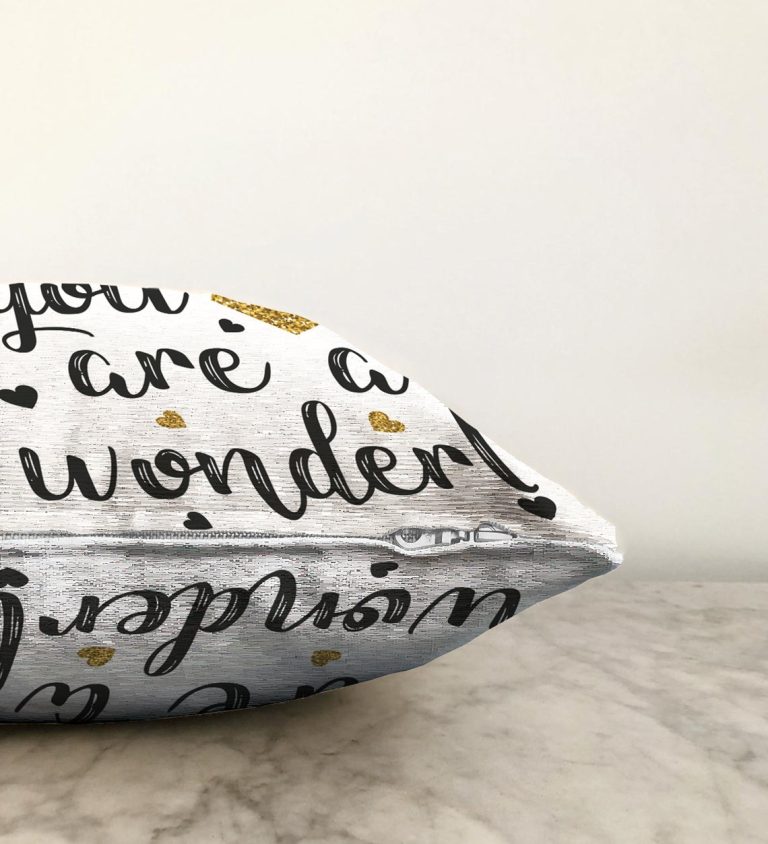 you
are a
wonderf
wonderf